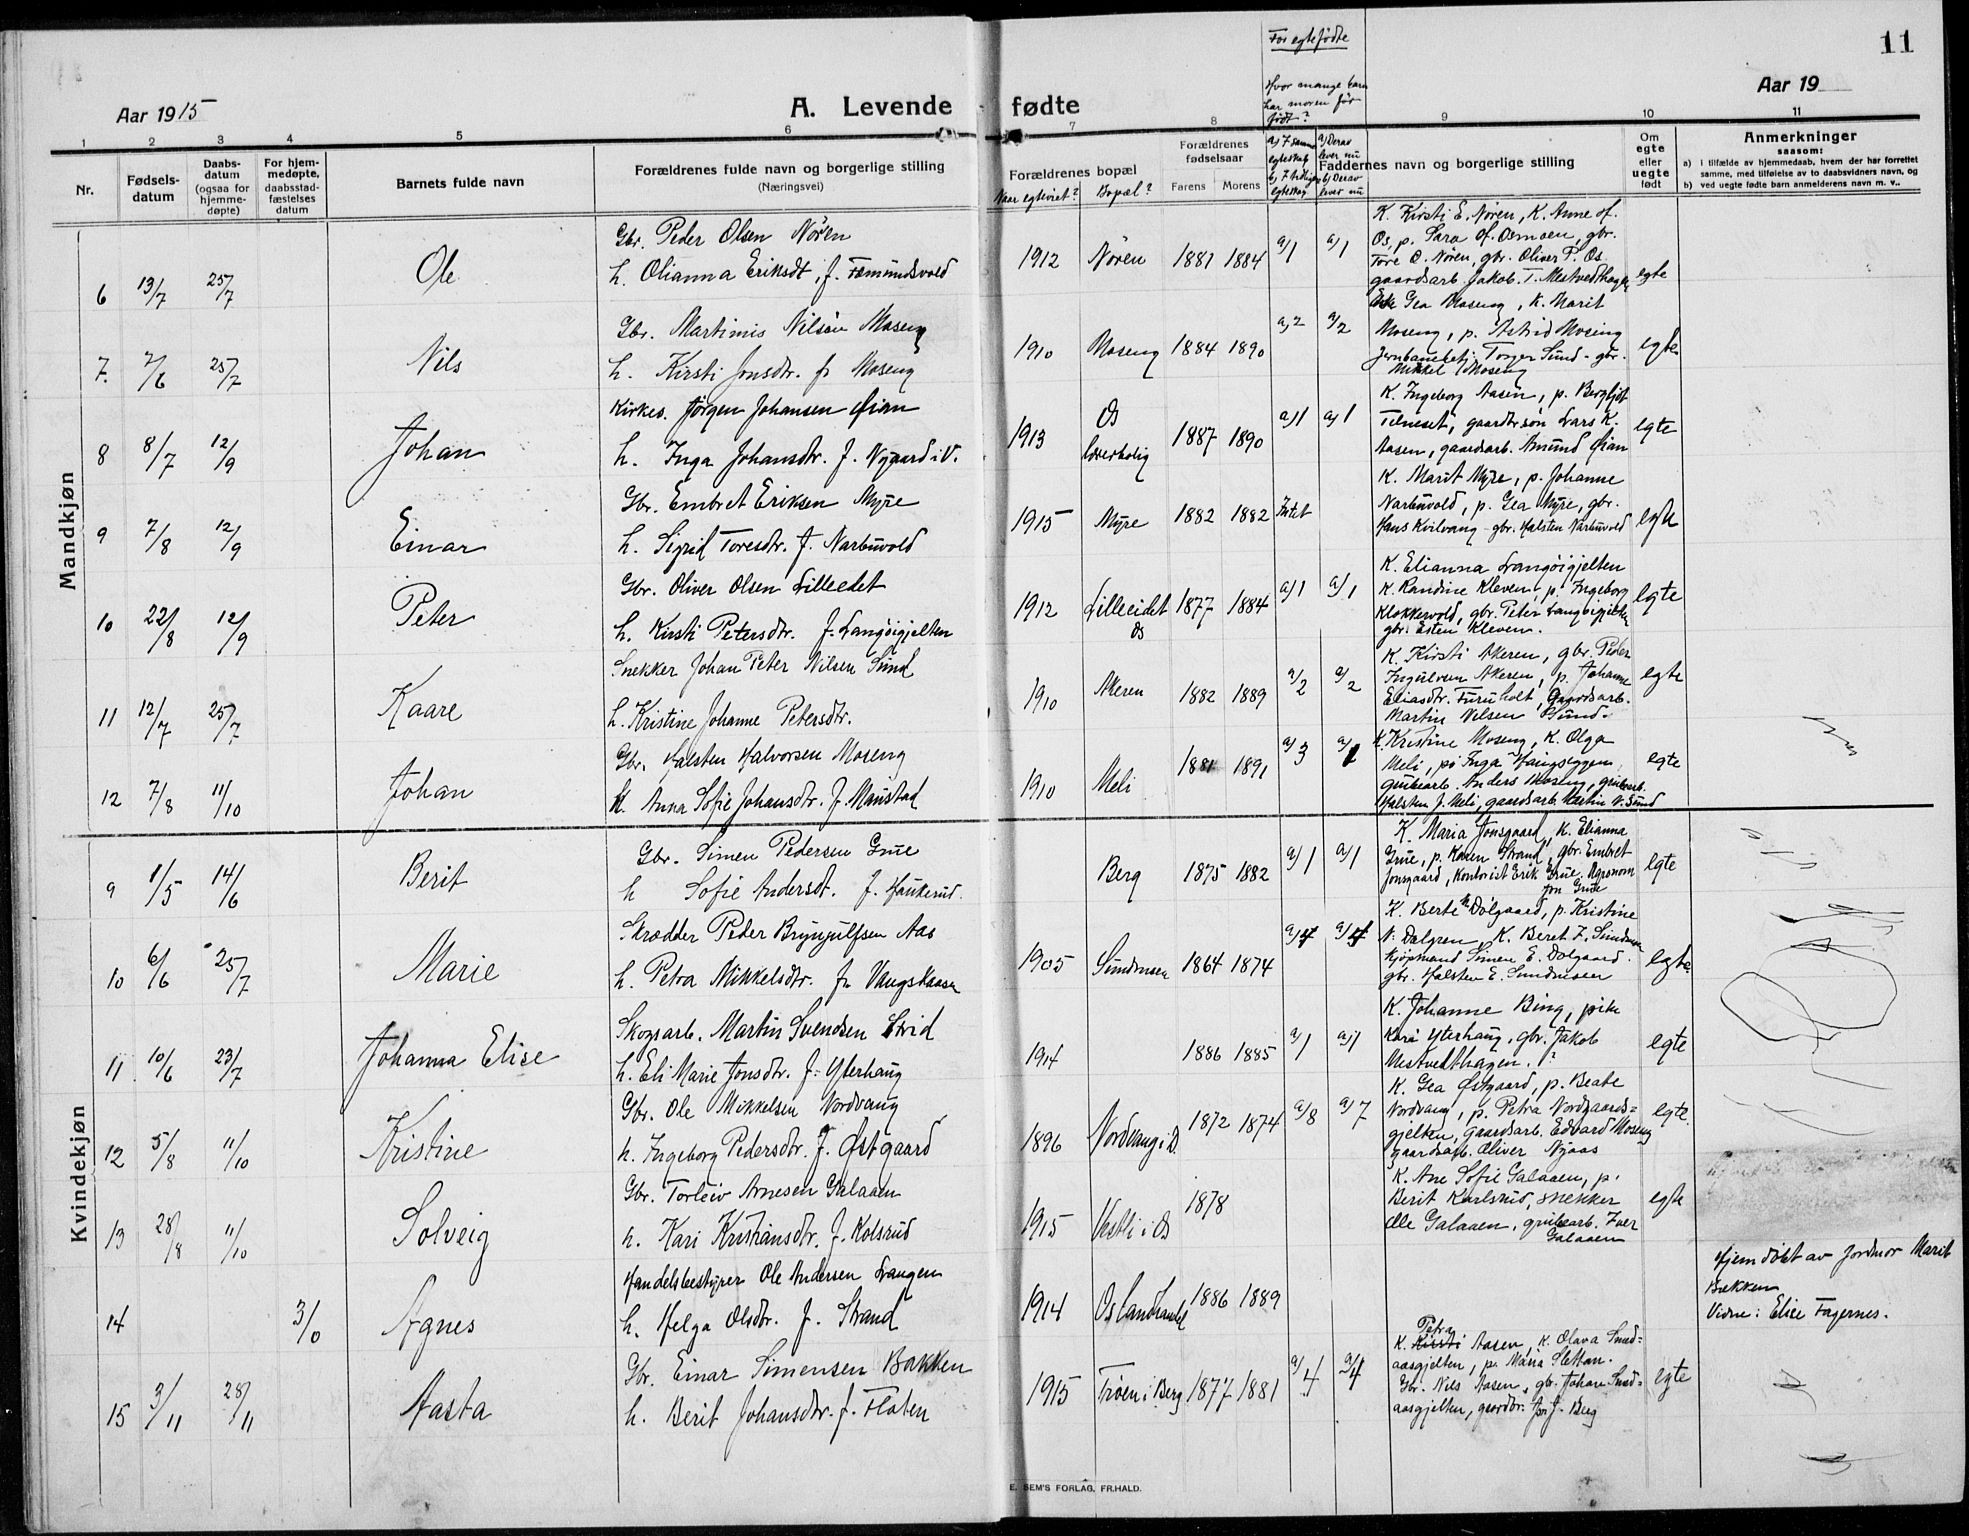 11
Aar 1915
A. Levende fødte
Aar 19
For egtefødte
Hvor mange barn har moren før født?
1 2 3 4 5 6 7 8 9 10 11
Nr.
Fødsels-datum
Daabs-datum (ogsaa for hjemme-døpte)
For hjem-medøpte, daabsstad-fæstelses datum
Barnets fulde navn
Forældrenes fulde navn og borgerlige stilling
(Næringsvei)
Forældrenes bopæl
Naar egteviet? Bopæl?
Forældrenes fødselsaar
Farens Morens
a) I samme egteskab b) I tidligere egteskap
a) Derav lever nu b) Derav lever nu
Faddernes navn og borgerlige stilling
Om egte eller uegte født
Anmerkninger
saasom:
a) i tilfælde av hjemmedaab, hvem der har forrettet samme, med tilføielse av to daabsvidners navn, og
b) ved uegte fødte barn anmelderens navn m. v..
Mandkjøn
Gbr. Peder Olsen Nören
K. Kirsti E. Nören, K. Anne of.
6 13/7 25/7 Ole h. Olianna Eriksdt, f. Femundsvold 1912 Nören 1881 1884 a/1 a/1 egte
Os, p. Sara of. Osmoen, gbr.
Tore O. Nören, gbr. Oliver P. Os
gaardsarb. Jakob. T. Mestvedthagen
Gbr. Martinus Nilsen Moseng
Gea Moseng, K. Marit
7. 7/6 25/7 Nils h. Kirsti Jonsdtr. f. Moseng 1910 Moseng 1884 1890 a/2 a/2 egte
Moseng, p. Astrid Moseng
Jernbanebetj. Torger Sund - gbr.
Mikkel Moseng
Kirkes. Jörgen Johansen Øian
K. Ingeborg Aasen, p. Bergljot
8 8/7 12/9 Johan h. Inga Johansdtr. f. Nygaard i V. 1913 Os lærerbolig 1887 1890 a/1 a/1 egte
Telneset, gaardbr.søn Lars K.
Aasen, gaardsarb. Amund Øian
Gbr. Embret Eriksen Myre
K. Marit Myre, p. Johanne
9 7/8 12/9 Einar h. Sigrid Toresdtr. f. Narbuvold 1915 Myre 1882 1882 Intet egte
Narbuvold, p. Gea Myre, gbr.
Hans Kvilvang - gbr. Halsten Narbuvold
Gbr. Oliver Olsen Lilleeidet
K. Elianna Langöigjelten
10 22/8 12/9 Peter h. Kirsti Petersdtr. f. Langöigjelten 1912 Lilleeidet Os 1877 1884 a/1 a/1 egte
K. Randine Kleven, p. Ingeborg
Klokkervold, gbr. Peter Langöigjelten
gbr. Esten Kleven.
Snekker Johan Peter Nilsen Sund
K. Kirsti Akeren, gbr. Peder
11 12/7 25/7 Kaare h. Kristine Johanne Petersdtr. 1910 Akeren 1882 1889 a/2 a/2 egte
Ingulvsen Akeren, p. Johanne
Eliasdtr. Furuholt, Gaardsarb.
Martin Nilsen Sund.
Gbr. Halsten Halvorsen Moseng
K. Kristine Moseng, K. Olga
12 7/8 11/10 Johan K. Anna Sofie Johansdtr. f. Maustad 1910 Meli 1881 1891 a/3 a/1 egte
Meli, p. Inga Haugseggen
grubearb. Anders Moseng, grubearb.
Halsten J. Meli, gaardsarb. Martin N. Sund
Kvindekjøn
Gbr. Simen Pedersen Grue
K. Maria Jonsgaard, K. Elianna
9 1/5 14/6 Berit h Sofie Andersdt. f. Haukerud. Berg 1875 1882 a/1 a/1 egte
Grue, p. Karen Strand, gbr. Embret
Jonsgaard, Kontorist Erik Grue. Agronom
Jon Grue
Skrædder Peder Brynjulfsen Aas
K. Berte Dölgaard, p. Kristine
10 6/6 25/7 Marie h. Petra Mikkelsdtr. f. Vangskaasen 1905 Sundmoen 1864 1874 a/4 a/4 egte
N. Dalgren, K. Beret I. Sundmoen
Kjöpmand Simen E. Dölgaard.
gbr. Halsten E. Sundmoen
Skogsarb. Martin Svendsen Lvid
K. Johanne Bing, pike
11 10/6 23/7 Johanna Elise h. Eli Marie Jonsdtr. f. Ytterhaug 1914 1886 1885 a/1 a/1 egte
Kari Ytterhaug, gbr. Jakob
Mestvedthagen.
Gbr. Ole Mikkelsen Nordvang
K. Gea Østgaard, p. Beate
12 5/8 11/10 Kristine h. Ingeborg Pedersdtr. f. Østgaard 1896 Nordvang i D. 1872 1874 a/8 a/7 egte.
Nordvang, p. Petra Nordgaards=
gjelten, gaardsarb. Edvard Moseng
gaardsarb. Oliver Nyaas
Gbr. Torleiv Arnesen Galaaen
K. Ane Sofie Galaaen, p.
13 28/8 11/10 Solveig h. Kari Kristiansdtr. f. Kolsrud 1915 Vestli i Os 1878 egte
Berit Karlsrud, snekker
Ole Galaaen, grubearb. Iver
Galaaen
Handelsbestyrer Ole Andersen Langen
14 3/0 Agnes h. Helga Olsdtr. f. Strand 1914 Os Landhandel 1886 1889
Hjemdöbt av Jordmor Marit
Bækken
Vidne: Elise Fagernes.
Gbr. Einar Simensen Bakken
Petra
K. Kirsti Aasen, K. Olava Sund=
15 3/11 28/11 Aasta h. Berit Johansdtr. f. Floten 1915 Tröen i Berg 1877 1881 a/4 a/4 egte
aasgjelten, p. Maria Slettan.
Gbr. Nils Aasen, gbr. Johan Sund=
aasgjelten, gaardbr. Jon J. Berg
E. SEM'S FORLAG, FR.HALD.